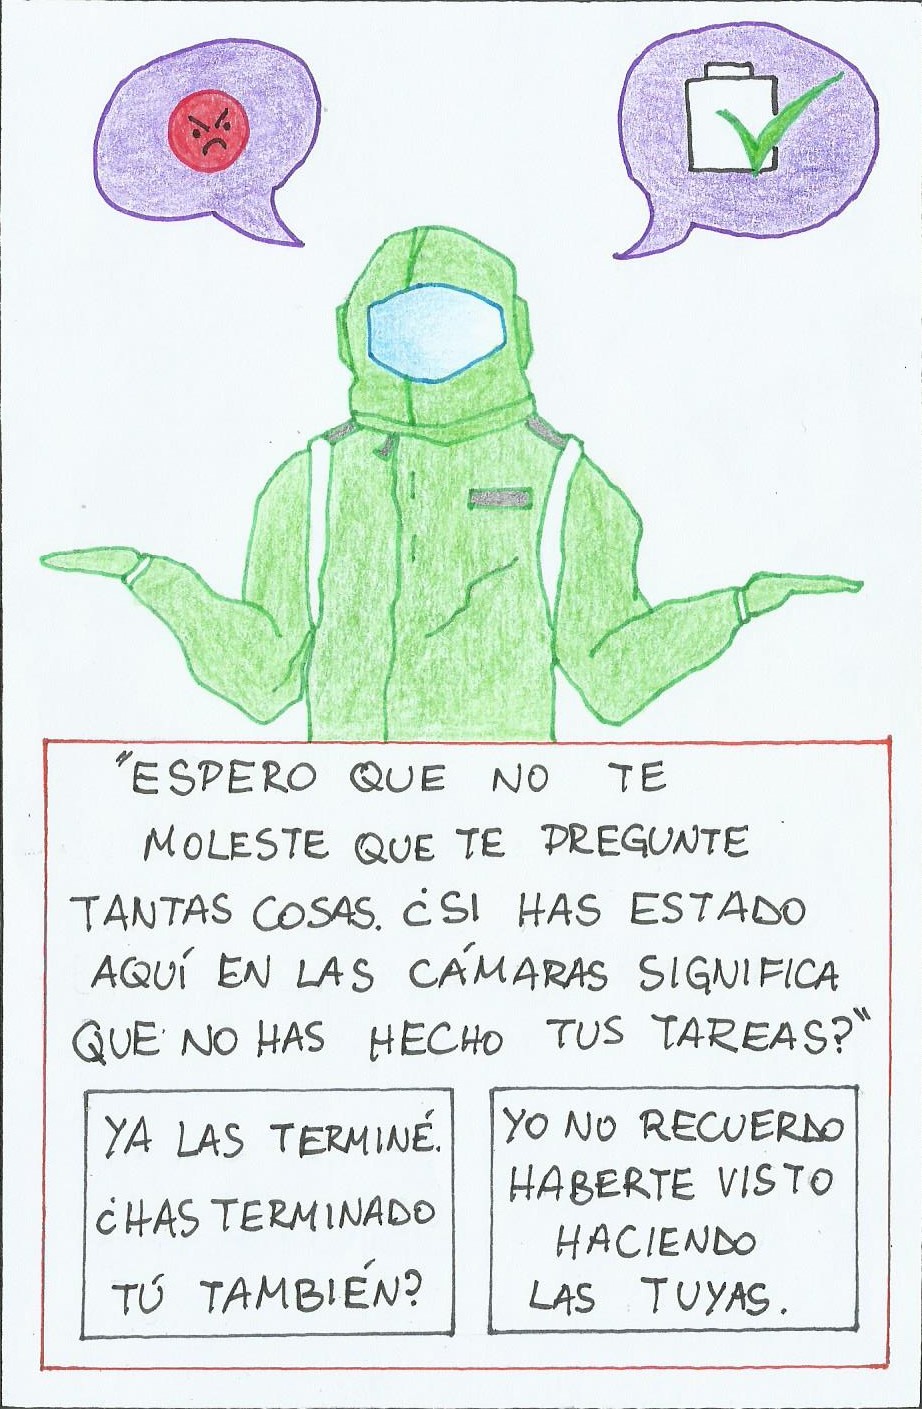 "ESPERO QUE NO TE
MOLESTE QUE TE PREGUNTE
TANTAS COSAS. ¿SI HAS ESTADO
AQUÍ EN LAS CÁMARAS SIGNIFICA
QUE NO HAS HECHO TUS TAREAS?"
YA LAS TERMINÉ.
¿HAS TERMINADO
TÚ TAMBIÉN?
YO NO RECUERDO
HABERTE VISTO
HACIENDO
LAS TUYAS.